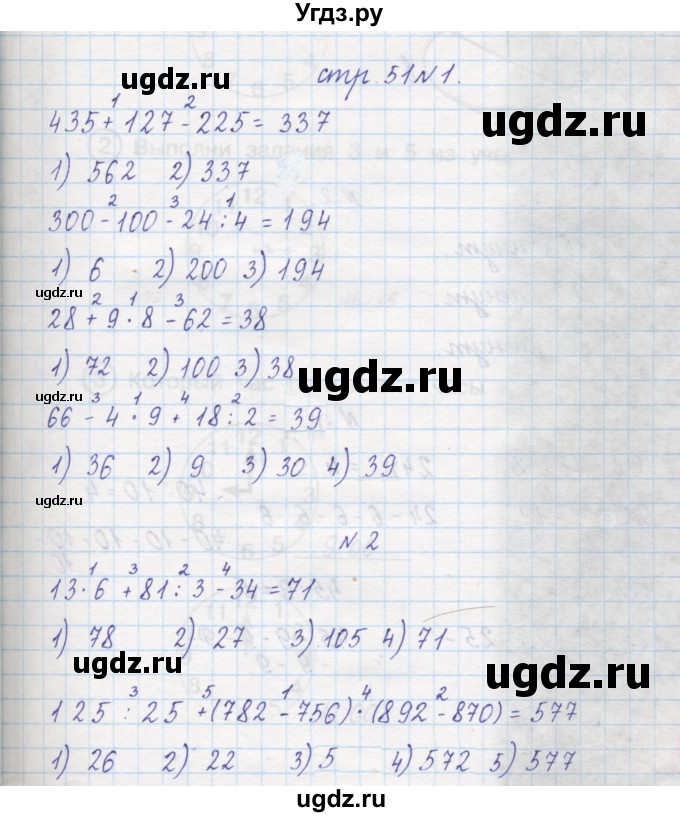 Угдз.ру
ugdz.ru
стр. 51 № 1.
ugdz.ru
435 + 127 - 225 = 337
1) 562 2) 337
300 - 100 - 24 : 4 = 194
1) 6 2) 200 3) 194
ugdz.ru
28 + 9 · 8 - 62 = 38
1) 72 2) 100 3) 38
ugdz.ru
ugdz.ru
66 - 4 · 9 + 18 : 2 = 39
1) 36 2) 9 3) 30 4) 39
ugdz.ru
№ 2
13 · 6 + 81 : 3 - 34 = 71
1) 78 2) 27 3) 105 4) 71
ugdz.ru
ugdz.ru
125 : 25 + (782 - 756) · (892 - 870) = 577
1) 26 2) 22 3) 5 4) 572 5) 577
ugdz.ru